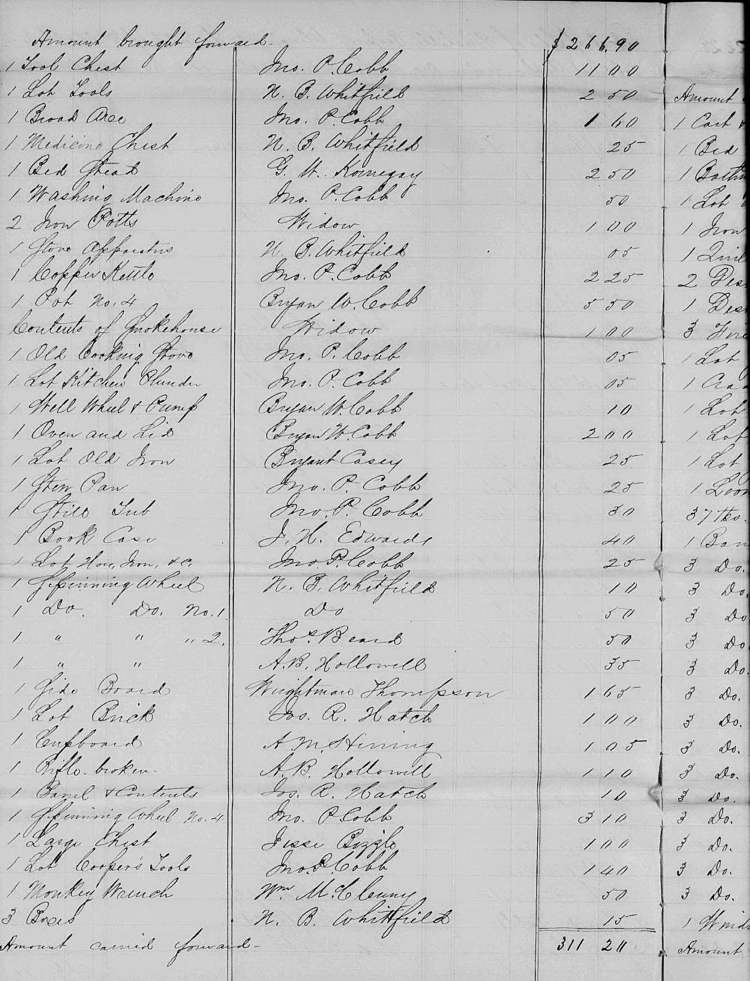 Amount brought forward- $266.90
1 Tool Chest Jno. P. Cobb 11 00
1 Lot Tools N. B. Whitfield 2 50
1 Broad Axe Jno. P. Cobb 1 60
1 Medicine Chest N. B. Whitfield 25
1 Bed Stead G. W. Kornegay 2 50
1 Washing Machine Jno. P. Cobb 50
2 Iron Potts Widow 1 00
1 Stove Apparatus N. B. Whitfield 05
1 Copper Kettle Jno. P. Cobb 2 25
1 Pot No. 4 Bryan W. Cobb 5 50
Contents of Smokehouse Widow 1 00
1 Old Cooking Stove Jno. P. Cobb 05
1 Lot Kitchen Plunder Jno. P. Cobb 05
1 Well Wheel & Pump Bryan W. Cobb 10
1 Oven and Lid Bryan W. Cobb 2 00
1 Lot Old Iron Bryant Casey 25
1 Stew Pan Jno. P. Cobb 25
1 Still Tub Jno. P. Cobb 30
1 Book Case J. H. Edwards 40
1 Lot Hoes, Iron, &c. Jno P. Cobb 25
1 Spinning Wheel N. B. Whitfield 10
1 Do. Do. No. 1. Do 50
1 " " " 2. Thos. Beard 50
1 " " A. B. Hollowell 35
1 Side Board Wrightman Thompson 1 65
1 Lot Brick Jos. R. Hatch 1 00
1 Cupboard A. M 1 05
1 Rifle broken. A. B. Hollowell 1 10
1 Barrel & Contents Jos. R. Hatch 10
1 Spinning Wheel No. 4 Jno. P. Cobb 3 10
1 Large Chest Jesse 1 00
1 Lot Cooper's Tools Jno. P. Cobb 1 40
1 Monkey Wrench Wm. McClenny 50
3 Boxes N. B. Whitfield 15
Amount carried forward- 311 20
Amount
1 Cart
1 Bed
1
1 Lot
1 Iron
1
2
1
3
1 Lot
1
1 Lot
1 Lot
1 Lot
1
37
1
3 Do.
3 Do.
3 Do.
3 Do.
3 Do.
3 Do.
3 Do.
3 Do.
3 Do.
3 Do.
3 Do.
3 Do.
3 Do.
1
Amount